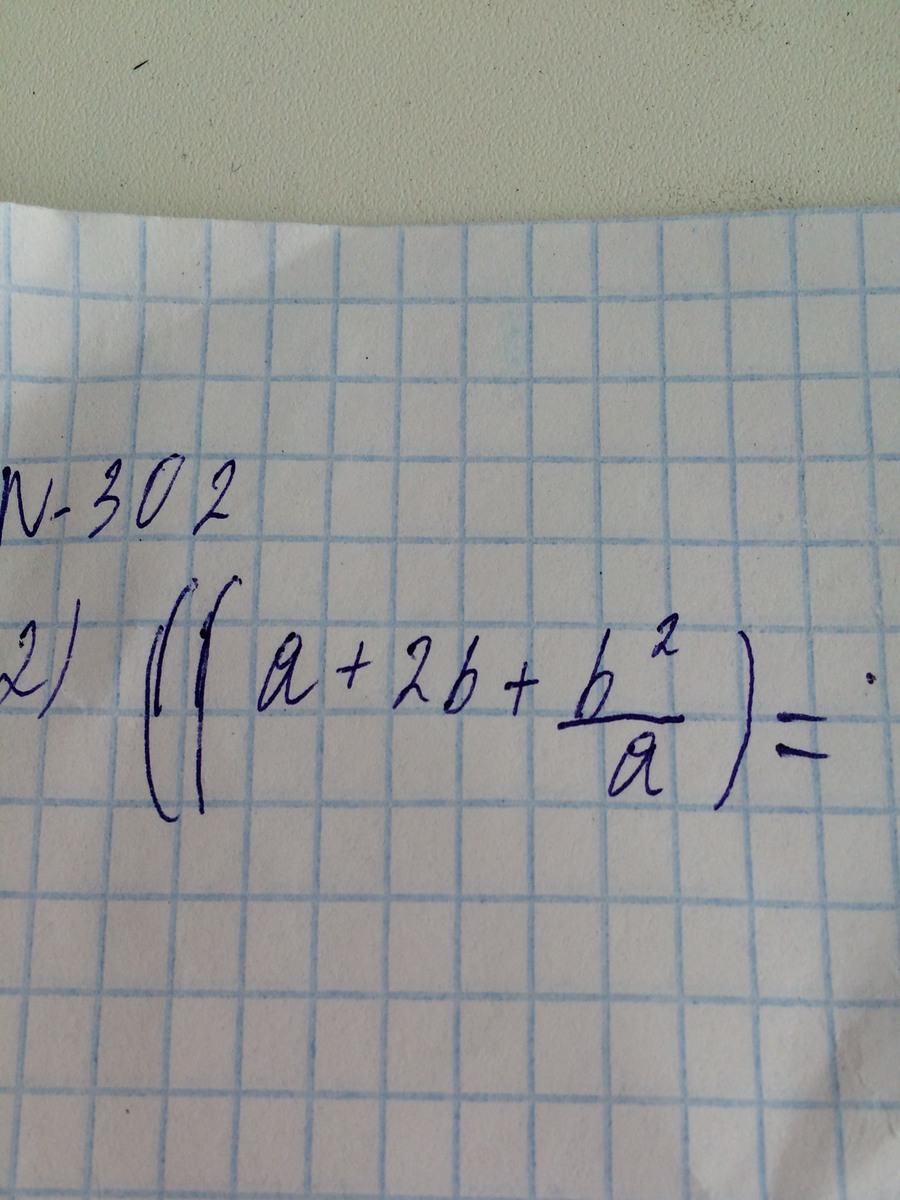 N-302
2) ((a + 2b + b²/a) =